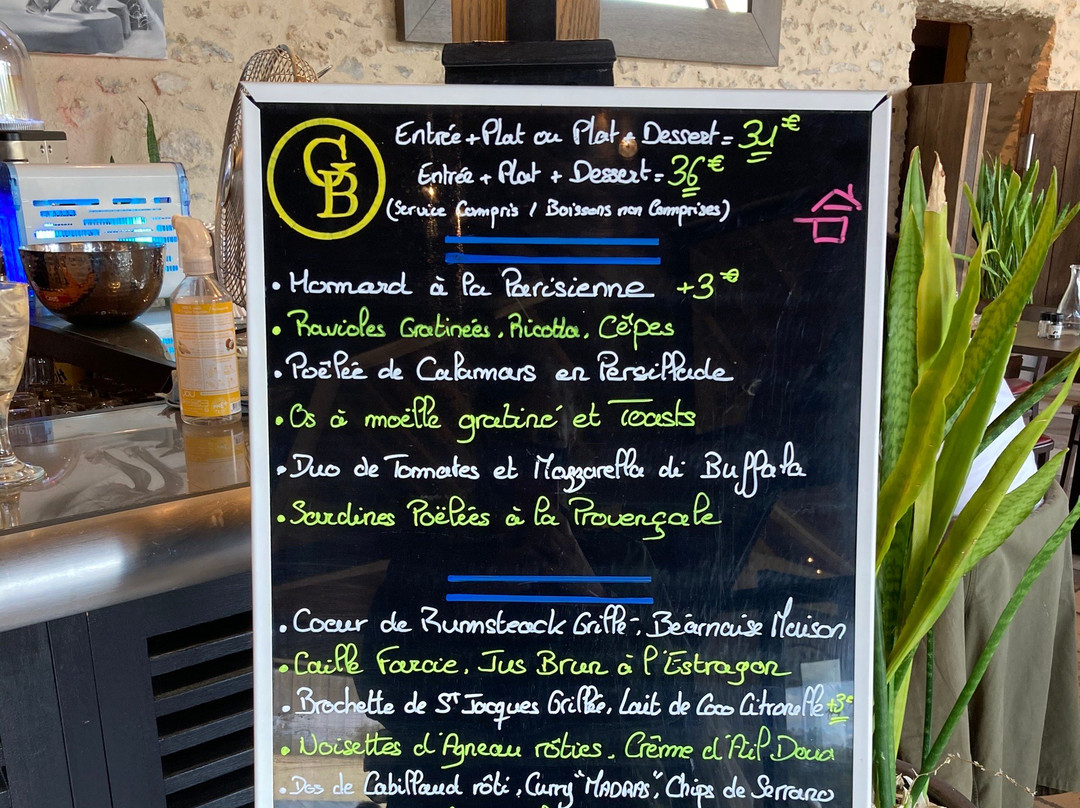 GB
Entrée + Plat ou Plat + Dessert = 31€
Entrée + Plat + Dessert = 36€
(Service Compris / Boissons non Comprises)
• Homard à la Parisienne +3€
• Ravioles Gratinées, Ricotta, Cêpes
• Poêlée de Calamars en Persillade
• Os à moëlle gratiné et Toasts
• Duo de Tomates et Mozzarella di Buffala
• Sardines Poêlées à la Provençale
• Coeur de Rumsteack Grillé, Béarnaise Maison
• Caille Farcie, Jus Brun à l'Estragon
• Brochette de St Jacques Grillée, Lait de Coco Citronelle +3€
• Noisettes d'Agneau rôties, Crème d'Ail Doux
• Dos de Cabillaud rôti, Curry "MADRAS", Chips de Serrano